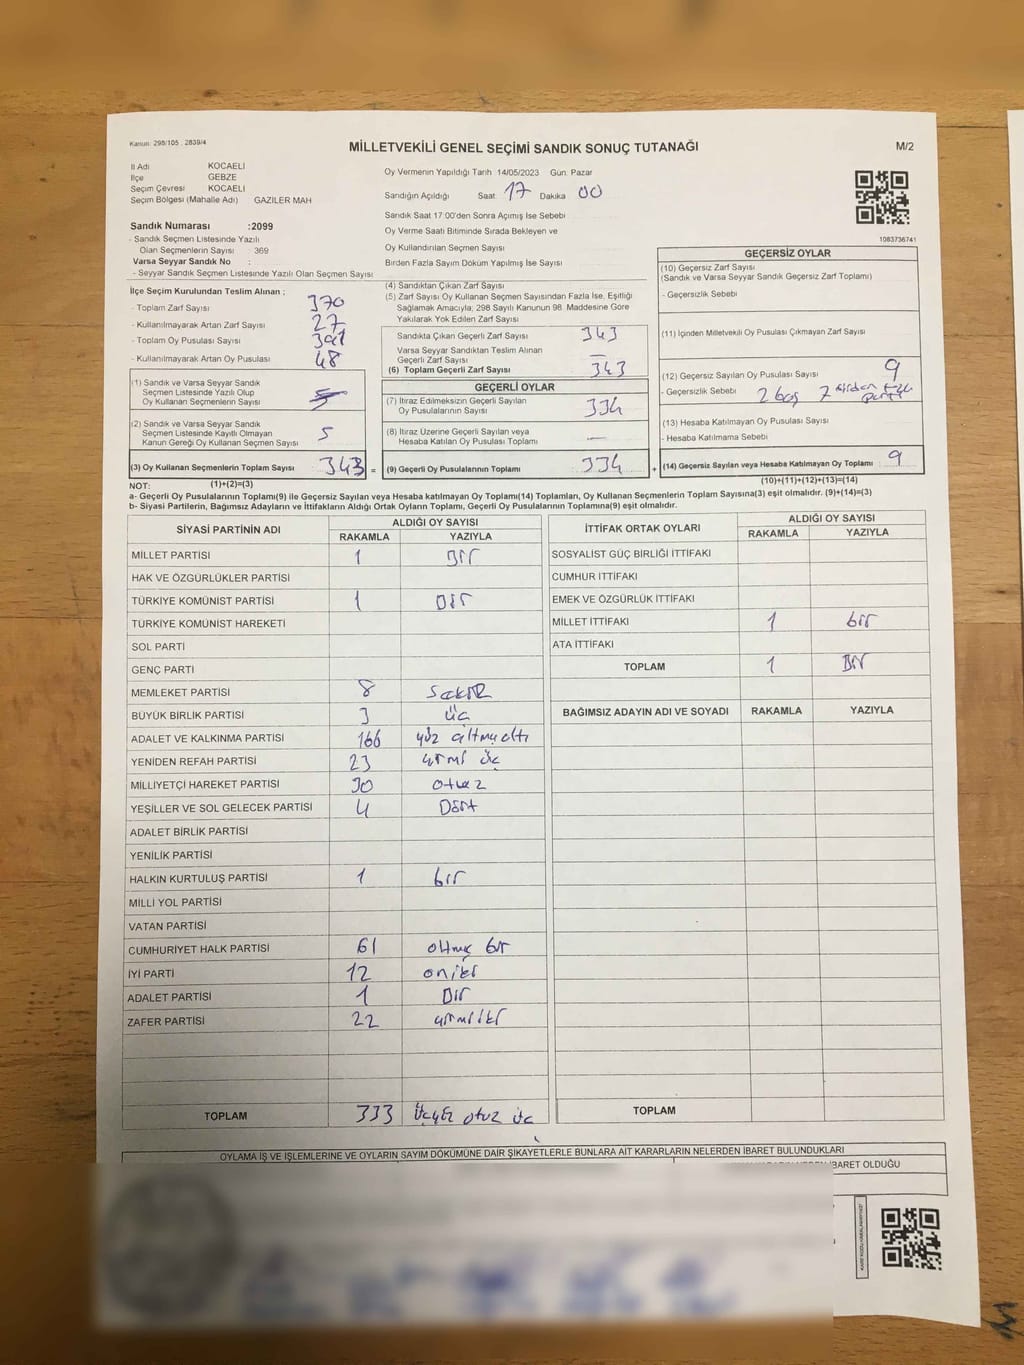 Kanun: 298/105 , 2839/4
MİLLETVEKİLİ GENEL SEÇİMİ SANDIK SONUÇ TUTANAĞI
M/2
İl Adı KOCAELİ
İlçe GEBZE
Seçim Çevresi KOCAELİ
Seçim Bölgesi (Mahalle Adı) GAZİLER MAH
Sandık Numarası :2099
- Sandık Seçmen Listesinde Yazılı
Olan Seçmenlerin Sayısı : 369
Varsa Seyyar Sandık No :
- Seyyar Sandık Seçmen Listesinde Yazılı Olan Seçmen Sayısı
Oy Vermenin Yapıldığı Tarih 14/05/2023 Gün: Pazar
Sandığın Açıldığı Saat 17 Dakika 00
Sandık Saat 17:00'den Sonra Açılmış İse Sebebi
Oy Verme Saati Bitiminde Sırada Bekleyen ve
Oy Kullandırılan Seçmen Sayısı
Birden Fazla Sayım Döküm Yapılmış İse Sayısı
1083736741
İlçe Seçim Kurulundan Teslim Alınan ;
- Toplam Zarf Sayısı 370
- Kullanılmayarak Artan Zarf Sayısı 27
- Toplam Oy Pusulası Sayısı 391
- Kullanılmayarak Artan Oy Pusulası 48
(1) Sandık ve Varsa Seyyar Sandık
Seçmen Listesinde Yazılı Olup
Oy Kullanan Seçmenlerin Sayısı
(2) Sandık ve Varsa Seyyar Sandık
Seçmen Listesinde Kayıtlı Olmayan
Kanun Gereği Oy Kullanan Seçmen Sayısı 5
(3) Oy Kullanan Seçmenlerin Toplam Sayısı 343 =
(4) Sandıktan Çıkan Zarf Sayısı
(5) Zarf Sayısı Oy Kullanan Seçmen Sayısından Fazla İse, Eşitliği
Sağlamak Amacıyla; 298 Sayılı Kanunun 98. Maddesine Göre
Yakılarak Yok Edilen Zarf Sayısı
Sandıkta Çıkan Geçerli Zarf Sayısı 343
Varsa Seyyar Sandıktan Teslim Alınan
Geçerli Zarf Sayısı —
(6) Toplam Geçerli Zarf Sayısı 343
GEÇERLİ OYLAR
(7) İtiraz Edilmeksizin Geçerli Sayılan
Oy Pusulalarının Sayısı 334
(8) İtiraz Üzerine Geçerli Sayılan veya
Hesaba Katılan Oy Pusulası Toplamı —
(9) Geçerli Oy Pusulalarının Toplamı 334 +
GEÇERSİZ OYLAR
(10) Geçersiz Zarf Sayısı
(Sandık ve Varsa Seyyar Sandık Geçersiz Zarf Toplamı)
- Geçersizlik Sebebi
(11) İçinden Milletvekili Oy Pusulası Çıkmayan Zarf Sayısı
(12) Geçersiz Sayılan Oy Pusulası Sayısı 9
- Geçersizlik Sebebi 2 boş 7 birden
(13) Hesaba Katılmayan Oy Pusulası Sayısı
- Hesaba Katılmama Sebebi
(14) Geçersiz Sayılan veya Hesaba Katılmayan Oy Toplamı 9
NOT: (1)+(2)=(3)
(10)+(11)+(12)+(13)=(14)
a- Geçerli Oy Pusulalarının Toplamı(9) ile Geçersiz Sayılan veya Hesaba katılmayan Oy Toplamı(14) Toplamları, Oy Kullanan Seçmenlerin Toplam Sayısına(3) eşit olmalıdır. (9)+(14)=(3)
b- Siyasi Partilerin, Bağımsız Adayların ve İttifakların Aldığı Ortak Oyların Toplamı, Geçerli Oy Pusulalarının Toplamına(9) eşit olmalıdır.
SİYASİ PARTİNİN ADI ALDIĞI OY SAYISI
RAKAMLA YAZIYLA
MİLLET PARTİSİ 1 Bir
HAK VE ÖZGÜRLÜKLER PARTİSİ
TÜRKİYE KOMÜNİST PARTİSİ 1 Bir
TÜRKİYE KOMÜNİST HAREKETİ
SOL PARTİ
GENÇ PARTİ
MEMLEKET PARTİSİ 8 Sekiz
BÜYÜK BİRLİK PARTİSİ 3 üç
ADALET VE KALKINMA PARTİSİ 166 yüz altmışaltı
YENİDEN REFAH PARTİSİ 23 yirmi üç
MİLLİYETÇİ HAREKET PARTİSİ 30 otuz
YEŞİLLER VE SOL GELECEK PARTİSİ 4 Dört
ADALET BİRLİK PARTİSİ
YENİLİK PARTİSİ
HALKIN KURTULUŞ PARTİSİ 1 bir
MİLLİ YOL PARTİSİ
VATAN PARTİSİ
CUMHURİYET HALK PARTİSİ 61 altmış bir
İYİ PARTİ 12 oniki
ADALET PARTİSİ 1 Bir
ZAFER PARTİSİ 22 yirmi iki
TOPLAM 333 üçyüz otuz üç
İTTİFAK ORTAK OYLARI ALDIĞI OY SAYISI
RAKAMLA YAZIYLA
SOSYALİST GÜÇ BİRLİĞİ İTTİFAKI
CUMHUR İTTİFAKI
EMEK VE ÖZGÜRLÜK İTTİFAKI
MİLLET İTTİFAKI 1 bir
ATA İTTİFAKI
TOPLAM 1 Bir
BAĞIMSIZ ADAYIN ADI VE SOYADI RAKAMLA YAZIYLA
TOPLAM
OYLAMA İŞ VE İŞLEMLERİNE VE OYLARIN SAYIM DÖKÜMÜNE DAİR ŞİKAYETLERLE BUNLARA AİT KARARLARIN NELERDEN İBARET BULUNDUKLARI
İBARET OLDUĞU